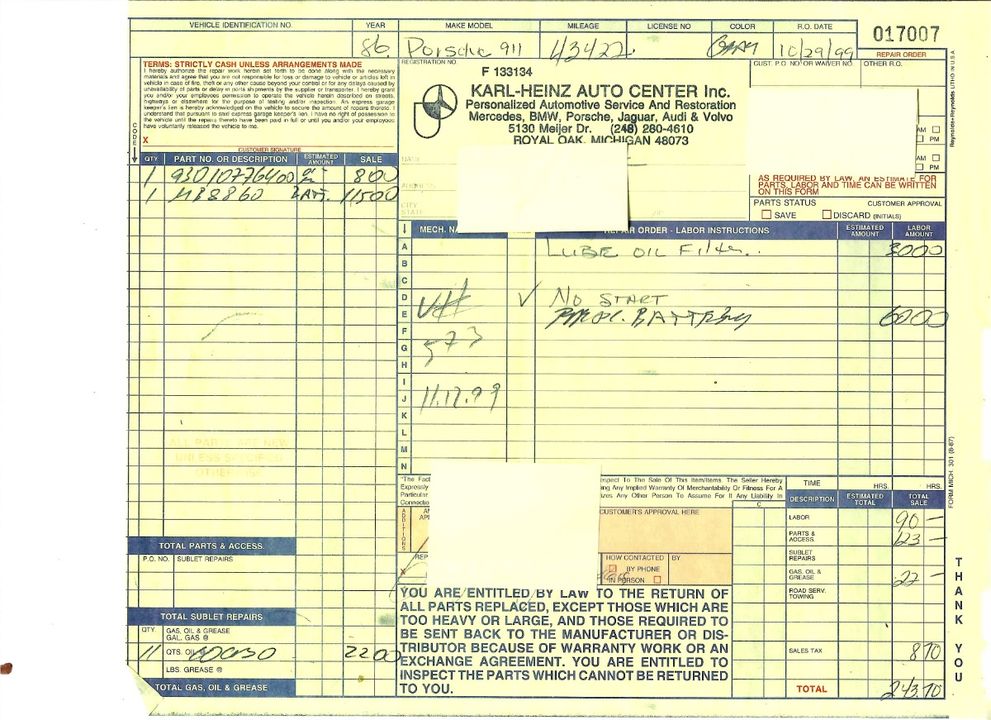 VEHICLE IDENTIFICATION NO. YEAR MAKE MODEL MILEAGE LICENSE NO COLOR R.O. DATE
017007
86 Porsche 911 43422 GRAY 10/29/99
REPAIR ORDER
TERMS: STRICTLY CASH UNLESS ARRANGEMENTS MADE
I hereby authorize the repair work herein set forth to be done along with the necessary
materials and agree that you are not responsible for loss or damage to vehicle or articles left in
vehicle in case of fire, theft or any other cause beyond your control or for any delays caused by
unavailability of parts or delays in parts shipments by the supplier or transporter. I hereby grant
you and/or your employees permission to operate the vehicle herein described on streets,
highways or elsewhere for the purpose of testing and/or inspection. An express garage
keeper's lien is hereby acknowledged on the vehicle to secure the amount of repairs thereto. I
understand that pursuant to said express garage keeper's lien, I have no right of possession to
the vehicle until the repairs thereto have been paid in full or until you and/or your employees
have voluntarily released the vehicle to me.
X
CUSTOMER SIGNATURE
CODE
REGISTRATION NO.
F 133134
KARL-HEINZ AUTO CENTER Inc.
Personalized Automotive Service And Restoration
Mercedes, BMW, Porsche, Jaguar, Audi & Volvo
5130 Meijer Dr. (248) 280-4610
ROYAL OAK, MICHIGAN 48073
NAME
ADDRESS
CITY
STATE
CUST. P.O. NO. OR WAIVER NO. OTHER R.O.
AM
PM
AM
PM
AS REQUIRED BY LAW, AN ESTIMATE FOR
PARTS, LABOR AND TIME CAN BE WRITTEN
ON THIS FORM
PARTS STATUS CUSTOMER APPROVAL
SAVE DISCARD (INITIALS)
QTY PART NO. OR DESCRIPTION ESTIMATED AMOUNT SALE
1 93010776400 800
1 BATT. 11500
MECH. REPAIR ORDER - LABOR INSTRUCTIONS ESTIMATED AMOUNT LABOR AMOUNT
A LUBE OIL Filter. 3000
B
C
D ✓ NO START
E BATTERY 6000
F
G 573
H
I
J 11.17.99
K
L
M
N
ALL PARTS ARE NEW
UNLESS SPECIFIED
OTHERWISE
"The Fact
Expressly
Particular
Connectio
spect To The Sale Of This Item/Items. The Seller Hereby
ing Any Implied Warranty Of Merchantability Or Fitness For A
izes Any Other Person To Assume For It Any Liability In
ADDITIONS
CUSTOMER'S APPROVAL HERE
HOW CONTACTED BY
BY PHONE
IN PERSON
X
TIME HRS. HRS.
DESCRIPTION ESTIMATED TOTAL TOTAL SALE
LABOR 90 —
PARTS & ACCESS. 123 —
SUBLET REPAIRS
GAS, OIL & GREASE 22 —
ROAD SERV. TOWING
SALES TAX 870
TOTAL 243.70
TOTAL PARTS & ACCESS.
P.O. NO. SUBLET REPAIRS
TOTAL SUBLET REPAIRS
QTY. GAS, OIL & GREASE
GAL. GAS @
11 QTS. OIL 2200
LBS. GREASE @
TOTAL GAS, OIL & GREASE
YOU ARE ENTITLED BY LAW TO THE RETURN OF
ALL PARTS REPLACED, EXCEPT THOSE WHICH ARE
TOO HEAVY OR LARGE, AND THOSE REQUIRED TO
BE SENT BACK TO THE MANUFACTURER OR DIS-
TRIBUTOR BECAUSE OF WARRANTY WORK OR AN
EXCHANGE AGREEMENT. YOU ARE ENTITLED TO
INSPECT THE PARTS WHICH CANNOT BE RETURNED
TO YOU.
THANK YOU
FORM MICH. 301 (8-87)
Reynolds+Reynolds LITHO IN U.S.A.